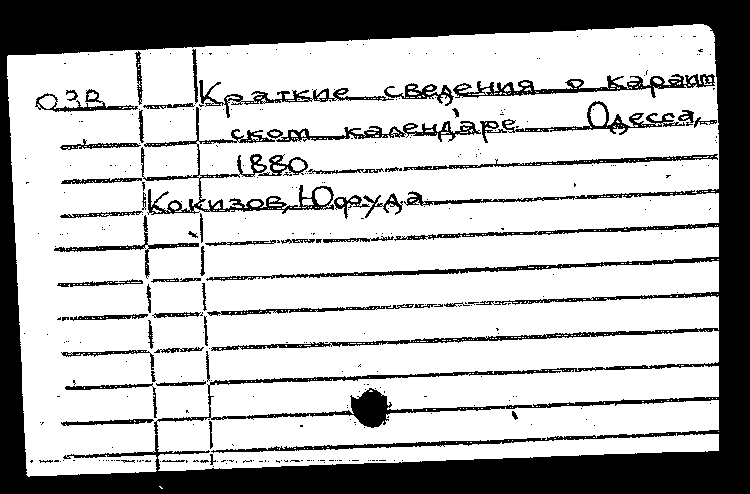 ОЗВ Краткие сведения о караим
ском календаре Одесса,
1880
Кокизов, Юфуда